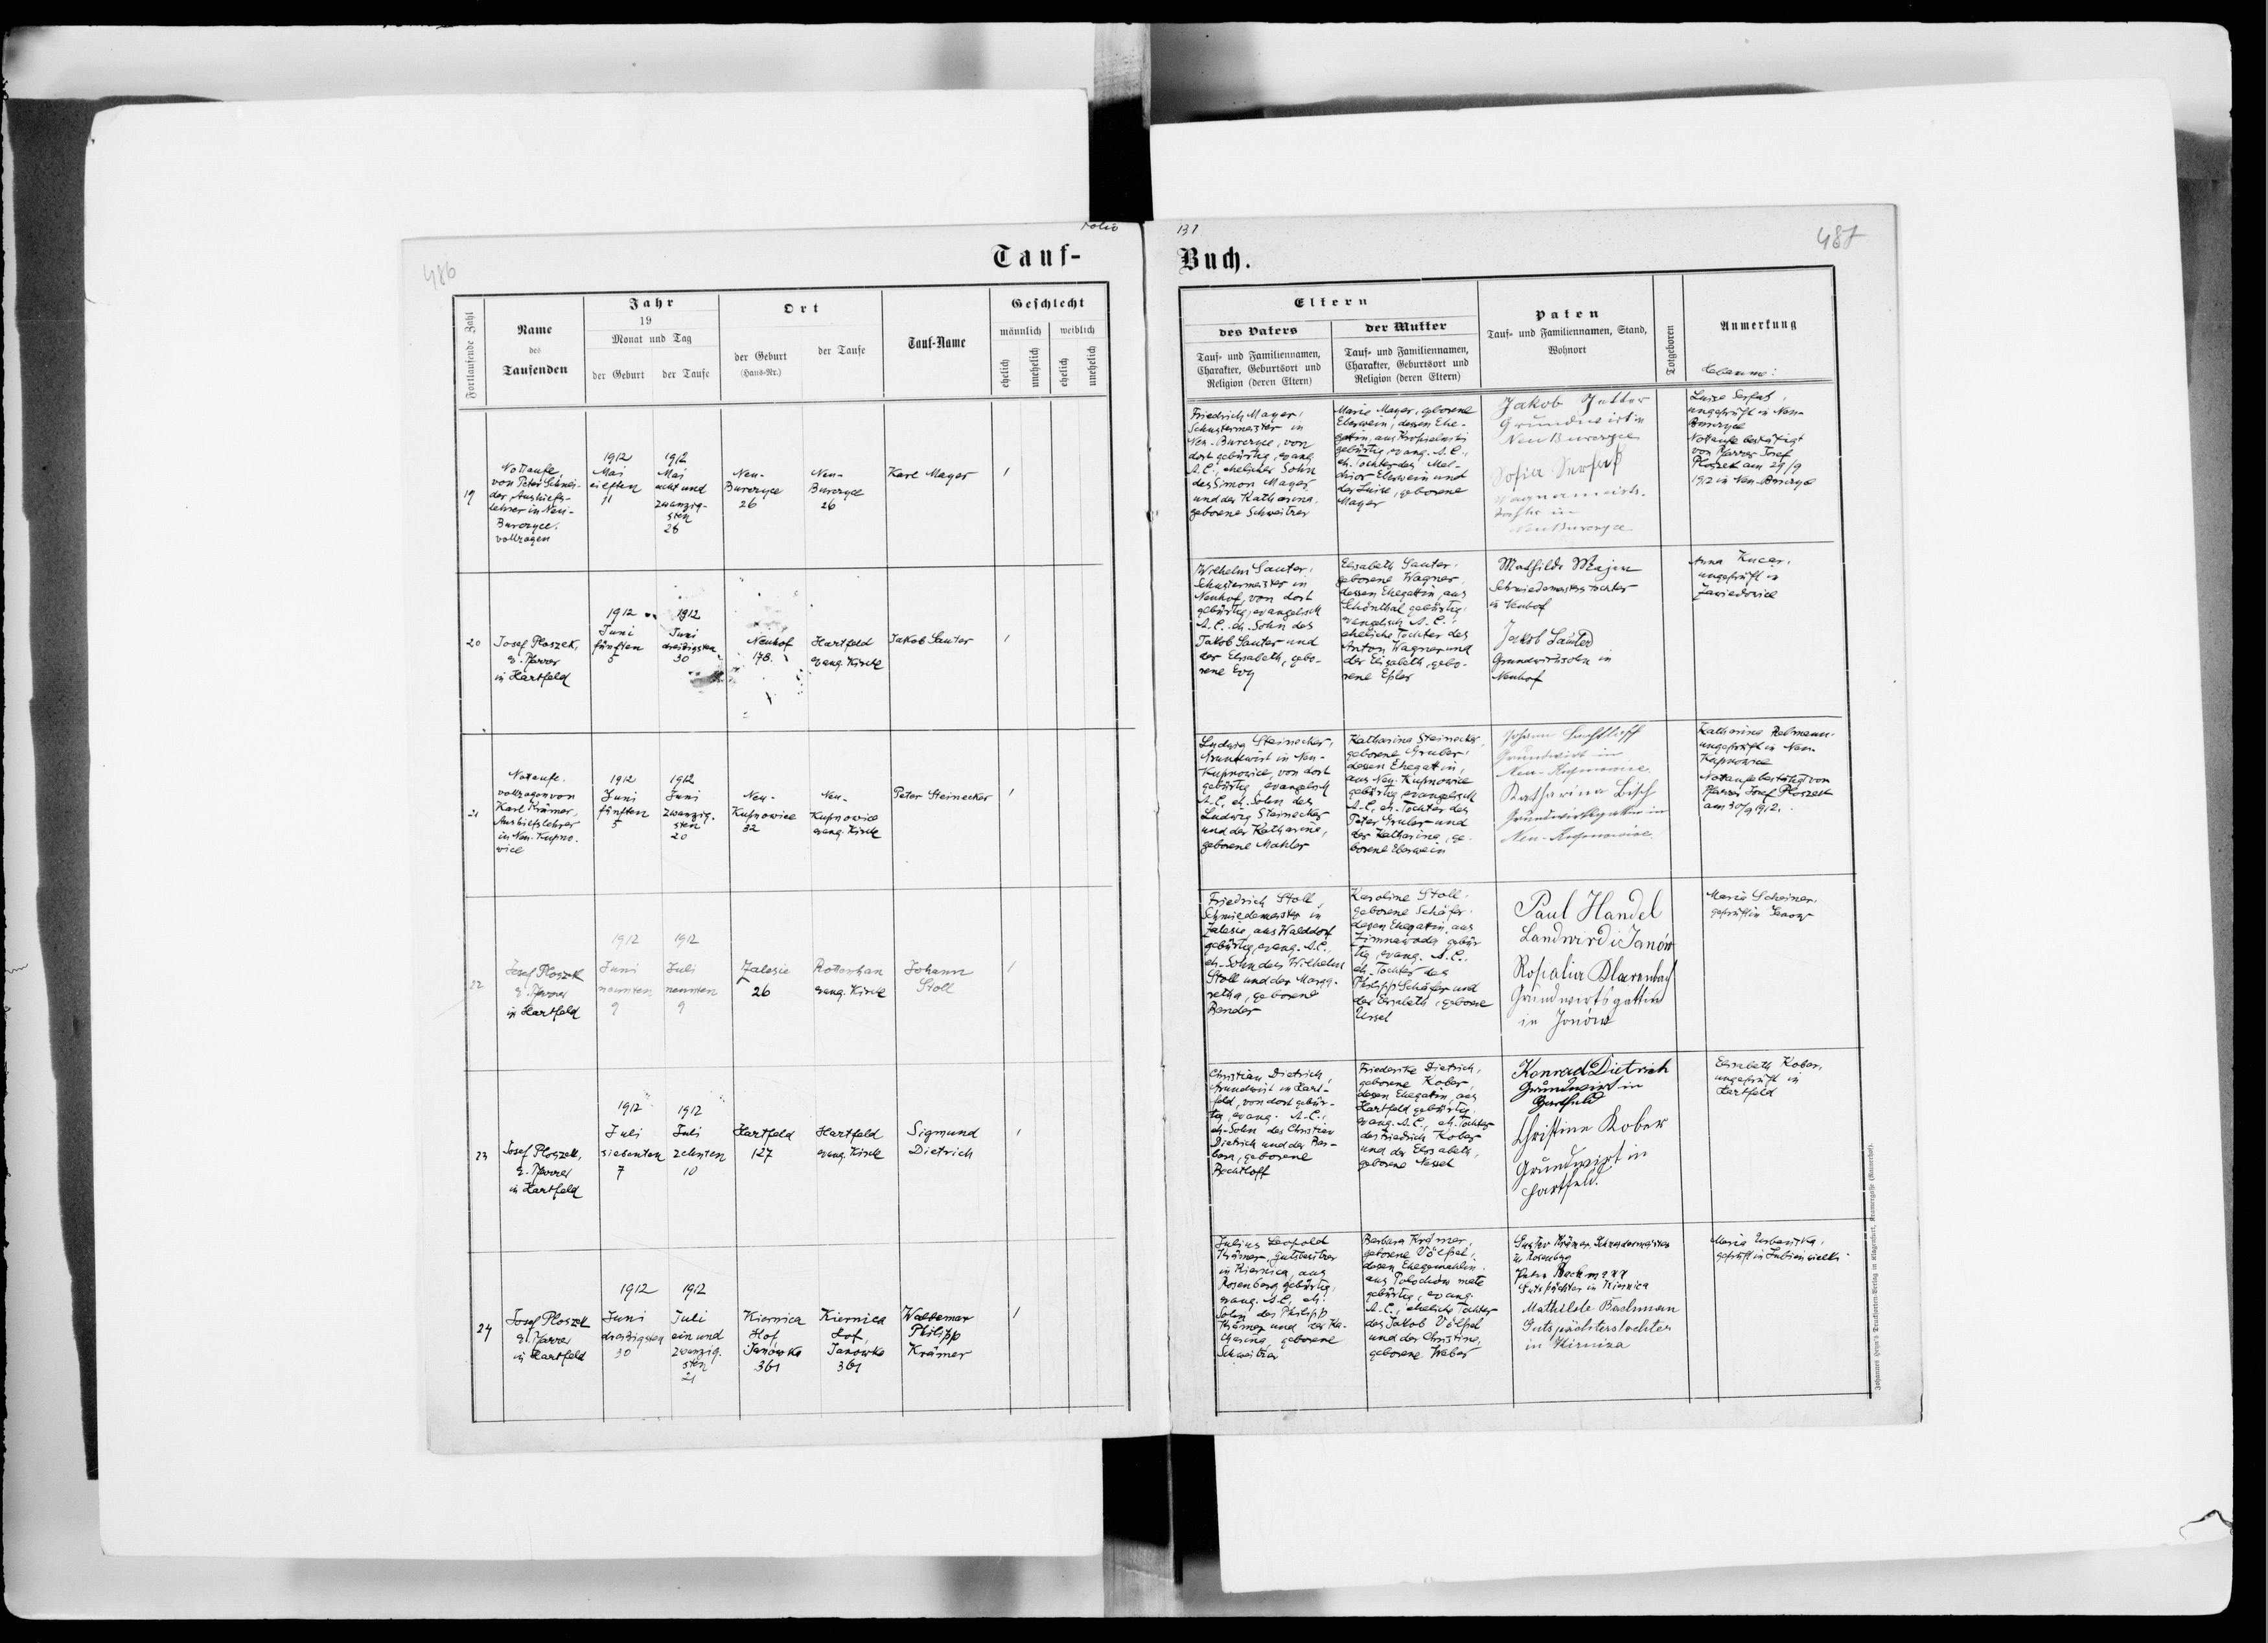 Folio
486
Tauf-
Fortlaufende Zahl
Name
des
Taufenden
Jahr
19
Monat und Tag
der Geburt
der Taufe
Ort
der Geburt
(Haus-Nr.)
der Taufe
Tauf-Name
Geschlecht
männlich
weiblich
ehelich
unehelich
ehelich
unehelich
19
Nottaufe,
von Peter Schnei-
der, Aushilfs-
lehrer in Neu-
Burczyce.
vollzogen
1912
Mai
eilften
11
1912
Mai
acht und
zwanzig-
sten
28
Neu-
Burczyce
26
Neu-
Burczyce
26
Karl Mayer
20
Josef Ploszek,
e. Pfarrer
in Hartfeld
1912
Juni
fünften
5
1912
Juni
dreißigsten
30
Neuhof
178.
Hartfeld
evang. Kirche
Jakob Sauter
21
Nottaufe.
vollzogen von
Karl Krämer,
Aushilfslehrer
in Neu-Kupno-
wice
1912
Juni
fünften
5
1912
Juni
zwanzig-
sten
20
Neu-
Kupnowice
32
Neu-
Kupnowice
evang. Kirche
Peter Steinecker
22
Josef Ploszek
e. Pfarrer
in Hartfeld
1912
Juni
neunten
9
1912
Juli
neunten
9
Zalesie
26
Rottenhan
evang. Kirche
Johann
Stoll
23
Josef Ploszek,
e. Pfarrer
in Hartfeld
1912
Juli
siebenten
7
1912
Juli
zehnten
10
Hartfeld
127
Hartfeld
evang. Kirche
Sigmund
Dietrich
24
Josef Ploszek
e. Pfarrer
in Hartfeld
1912
Juni
dreißigsten
30
1912
Juli
ein und
zwanzig-
sten
21
Kiernica
Hof,
Janówka
361
Kiernica
Hof,
Janówka
361
Waldemar
Philipp
Krämer
131
487
Buch.
Eltern
des Vaters
Tauf- und Familiennamen,
Charakter, Geburtsort und
Religion (deren Eltern)
der Mutter
Tauf- und Familiennamen,
Charakter, Geburtsort und
Religion (deren Eltern)
Paten
Tauf- und Familiennamen, Stand,
Wohnort
Totgeboren
Anmerkung
Hebamme:
Friedrich Mayer,
Schustermeister in
Neu-Burczyce, von
dort gebürtig, evang.
A.C., ehelicher Sohn
des Simon Mayer
und der Katharina,
geborene Schweitzer
Marie Mayer, geborene
Eberwein, dessen Ehe-
gattin, aus
gebürtig, evang. A.C.,
eh. Tochter des Mel-
chior Eberwein und
der Luise, geborene
Mayer
Jakob Jetter
Grundwirt in
Neu Burczyce
Sofia Serfaß
in
Neu Burczyce
Luise Serfas,
ungeprüft in Neu-
Burczyce
Nottaufe bestätigt
von Pfarrer Josef
Ploszek am 29/9
1912 in Neu-Burczyce
Wilhelm Sauter,
Schustermeister in
Neuhof, von dort
gebürtig, evangelisch
A.C. eh. Sohn des
Jakob Sauter und
der Elisabeth, gebo-
rene Evy
Elisabeth Sauter,
geborene Wagner,
dessen Ehegattin, aus
Schönthal gebürtig,
evangelisch A.C.,
eheliche Tochter des
Anton Wagner und
der Elisabeth, gebo-
rene Epler
Mathilde Majer
Schmiedemeisters tochter
in Neuhof
Jakob Sauter
Grundwirtssohn in
Neuhof
Anna Kucer,
ungeprüft in
Zawidowice
Ludwig Steinecker,
Grundwirt in Neu-
Kupnowice, von dort
gebürtig, evangelisch
A.C. eh. Sohn des
Ludwig Steinecker
und der Katharina,
geborene Mahler
Katharina Steinecker,
geborene Gruber,
dessen Ehegattin,
aus Neu-Kupnowice
gebürtig, evangelisch
A.C., eh. Tochter des
Peter Gruber und
der Katharina, ge-
borene Eberwein
Johann Bechtloff
Grundwirt in
Neu-Kupnowice
Katharina
Grundwirtsgattin in
Neu-Kupnowice
Katharina
ungeprüft in Neu-
Kupnowice
Nottaufe bestätigt von
Pfarrer Josef Ploszek
am 30/9 1912.
Friedrich Stoll,
Schmiedemeister in
Zalesie, aus Walddorf
gebürtig, evang. A.C.,
eh. Sohn des Wilhelm
Stoll und der Marga-
retha, geborene
Bender
Karoline Stoll,
geborene Schäfer,
dessen Ehegattin, aus
Zimnawoda gebür
tig, evang. A.C.,
eh. Tochter des
Philipp Schäfer und
der Elisabeth, geborene
Ursel
Paul Handel
Landwird i Janów
Rosalia Klarenbach
Grundwirtsgattin
in Janów
Maria Scheiner,
geprüft in Janow
Christian Dietrich,
Grundwirt in Hart-
feld, von dort gebür-
tig, evang. A.C.,
eh. Sohn des Christian
Dietrich und der Bar-
bara, geborene
Bechtloff
Friederike Dietrich,
geborene Kober,
dessen Ehegattin, aus
Hartfeld gebürtig,
evang. A.C., eh. Tochter
des Friedrich Kober
und der Elisabeth,
geborene Massel
Konrad Dietrich
Grundwirt in
Hartfeld
Christine Kober
Grundwirt in
Hartfeld.
Elisabeth Kober,
ungeprüft in
Hartfeld
Julius Leopold
Krämer, Gutsbesitzer
in Kiernica, aus
Rosenberg gebürtig,
evang. A.C., eh.
Sohn des Philipp
Krämer und der Ka-
tharina, geborene
Schweitzer
Barbara Krämer,
geborene Völpel,
dessen Ehegemahlin,
aus Polochów małe
gebürtig, evang.
A.C., eheliche Tochter
des Jakob Völpel
und der Christine,
geborene Weber
Gustav Krämer, Schneidermeister
in Rosenberg
Peter Bachmann
Gutspächter in Kiernica
Mathilde Bachman
Gutspächterstochter
in Kirnica
Maria Urbanska,
geprüft in Lubien wielki.
Johannes Heyn's Drucksorten-Verlag in Klagenfurt, Kramergasse (Kainerhof).